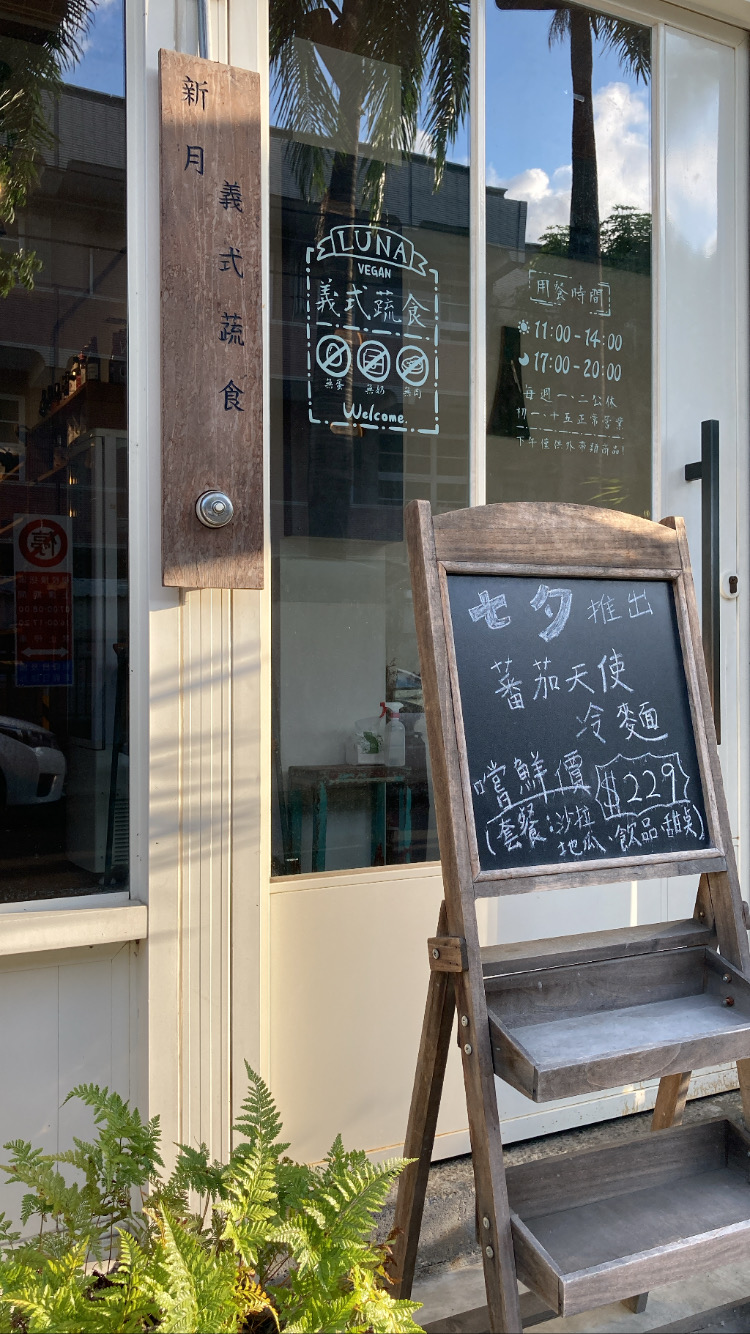 新月
義式蔬食
LUNA
VEGAN
義式蔬食
無蛋 無奶 無肉
Welcome
用餐時間
11:00-14:00
17:00-20:00
每週一、二公休
初一、十五正常營業
七夕 推出
蕃茄天使
冷麵
嚐鮮價 $229
(套餐:沙拉
地瓜、飲品、甜點)